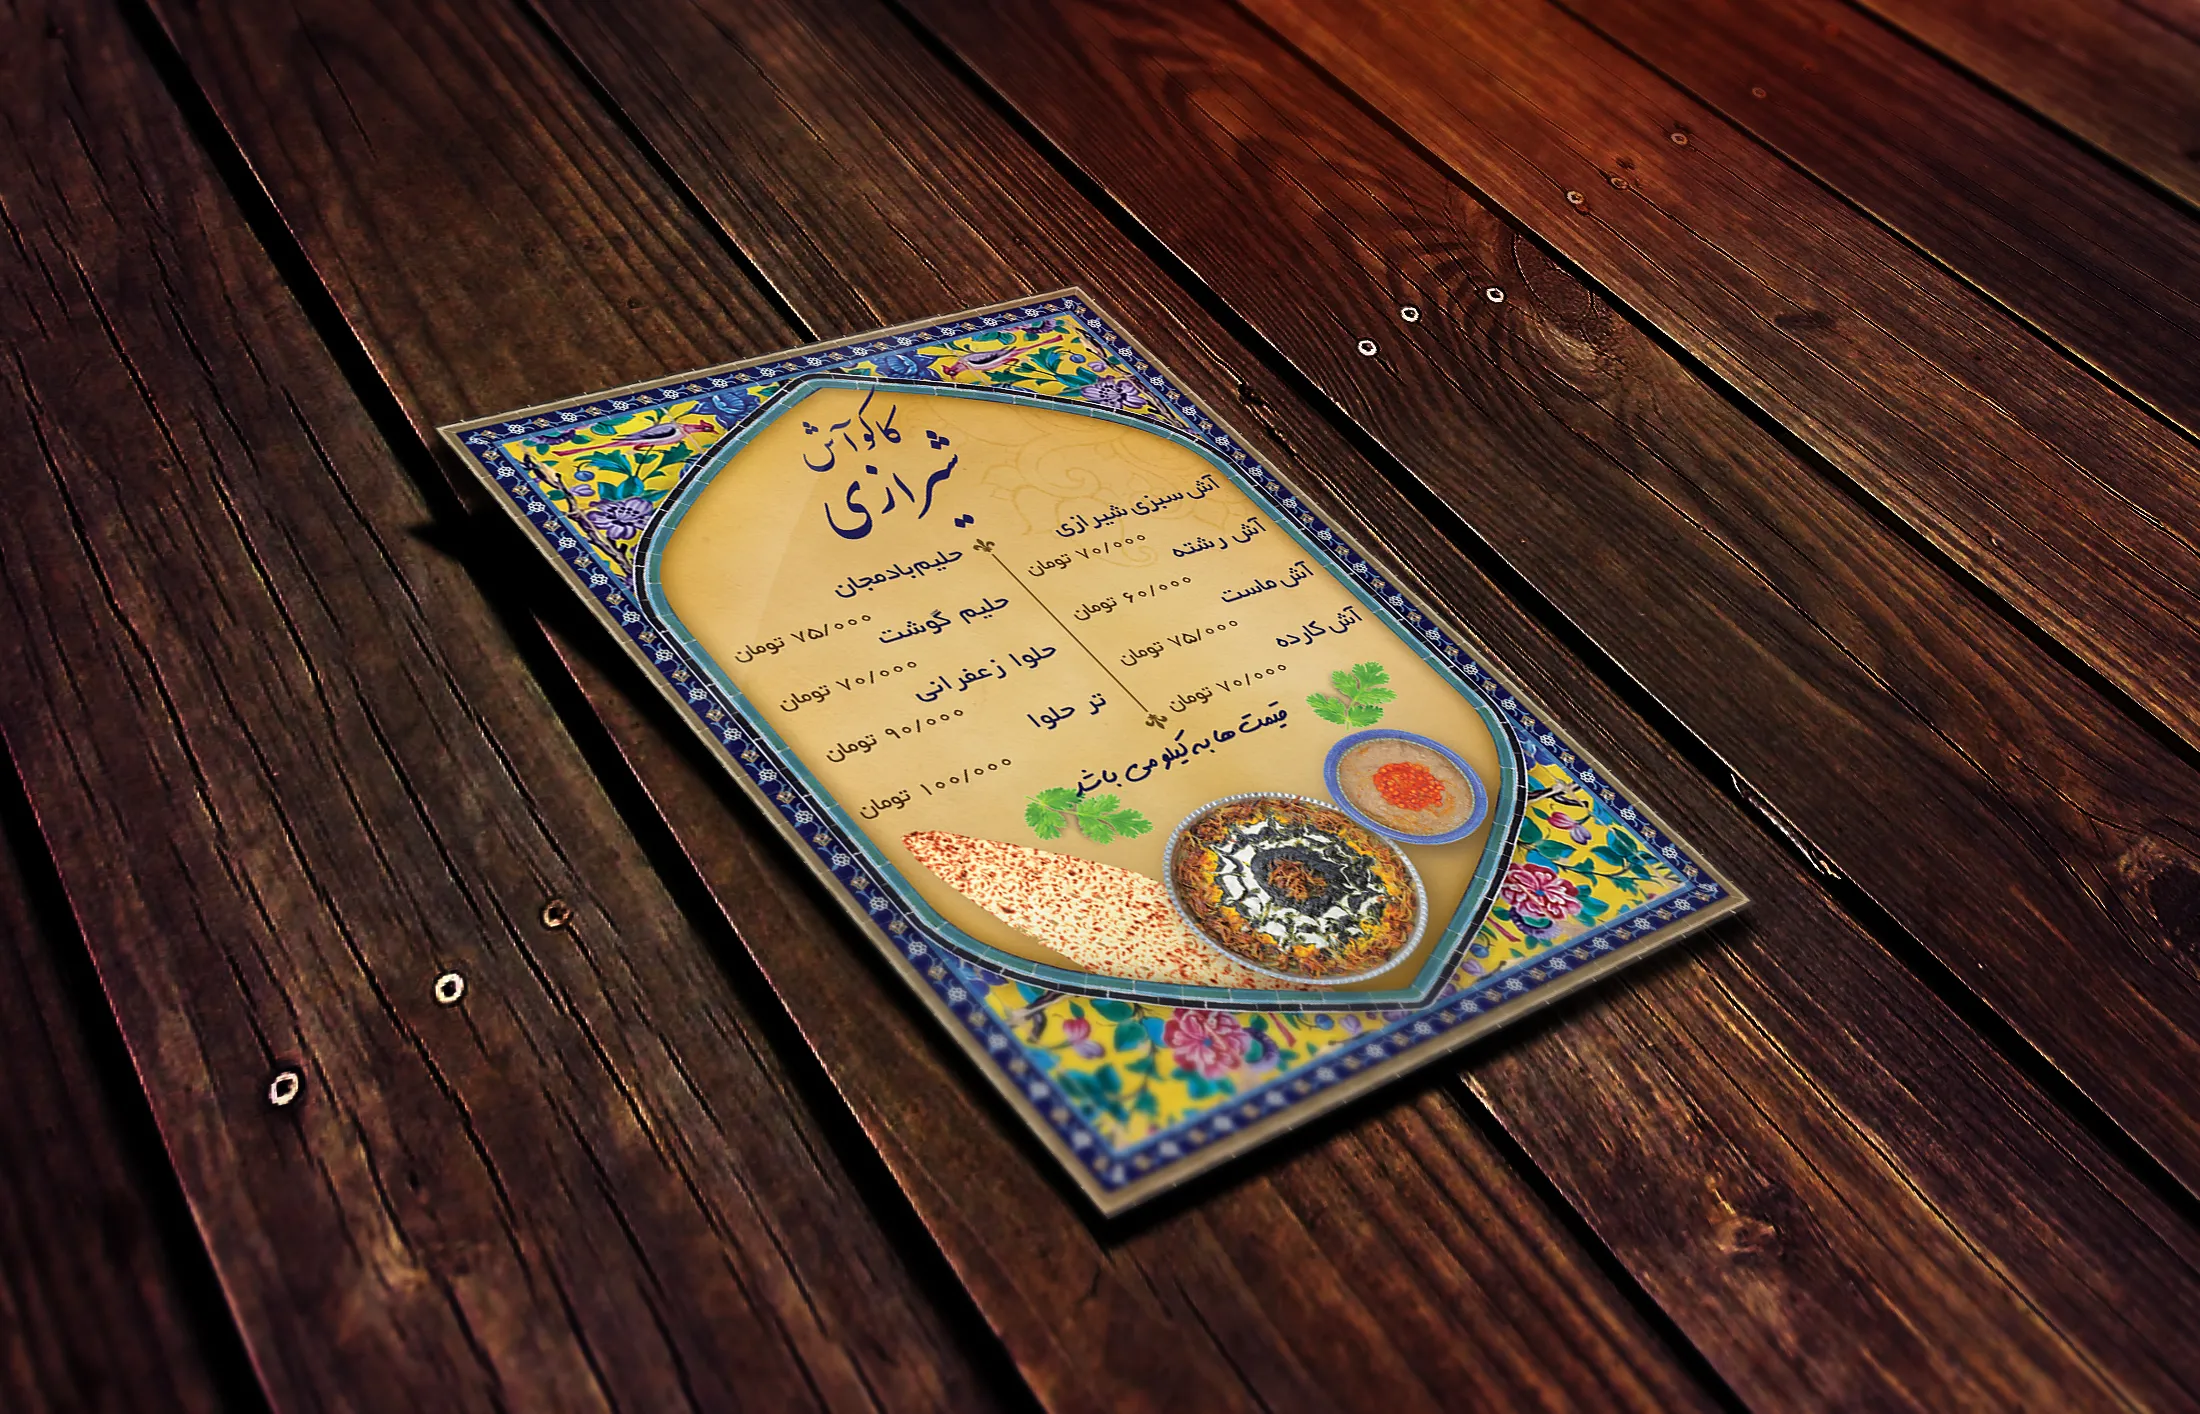 کاکو آش
شیرازی
آش سبزی شیرازی
۷۰/۰۰۰ تومان
آش رشته
۶۰/۰۰۰ تومان
آش ماست
۷۵/۰۰۰ تومان
آش کارده
۷۰/۰۰۰ تومان
حلیم بادمجان
۷۵/۰۰۰ تومان
حلیم گوشت
۷۰/۰۰۰ تومان
حلوا زعفرانی
۹۰/۰۰۰ تومان
تر حلوا
۱۰۰/۰۰۰ تومان
قیمت ها به کیلو می باشد